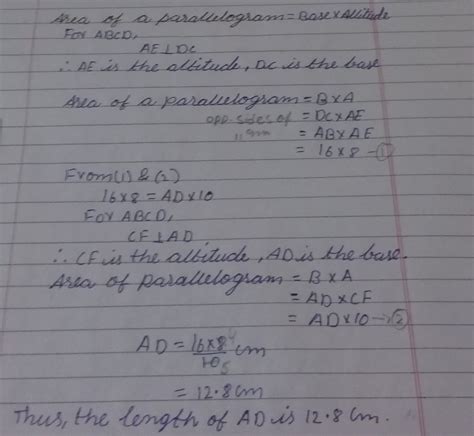 Area of a parallelogram = Base x Altitude
For ABCD,
AE ⊥ DC
∴ AE is the altitude, DC is the base
Area of a parallelogram = B x A
opp. sides of = DC x AE
11gm = AB x AE
= 16 x 8 - ①
From (1) & (2)
16 x 8 = AD x 10
For ABCD,
CF ⊥ AD
∴ CF is the altitude, AD is the base.
Area of parallelogram = B x A
= AD x CF
= AD x 10 - ②
AD = 16 x 8⁴ / 10₅ cm
= 12.8 cm
Thus, the length of AD is 12.8 cm.